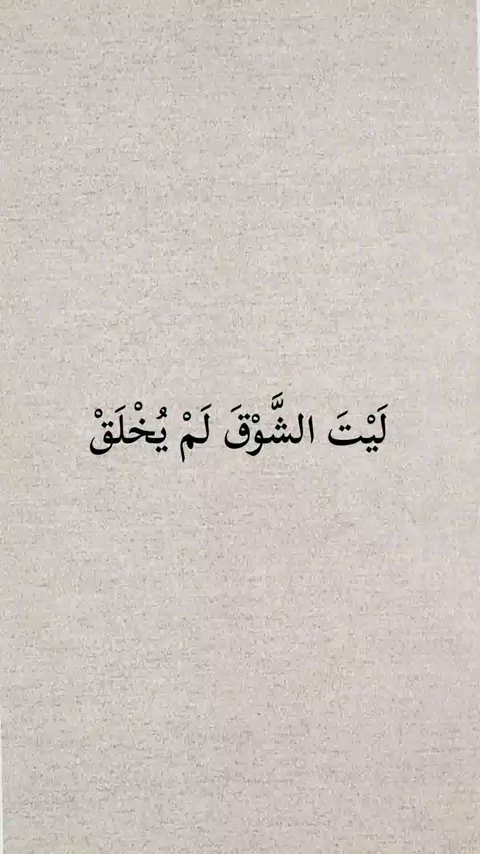 لَيْتَ الشَّوْقَ لَمْ يُخْلَقْ